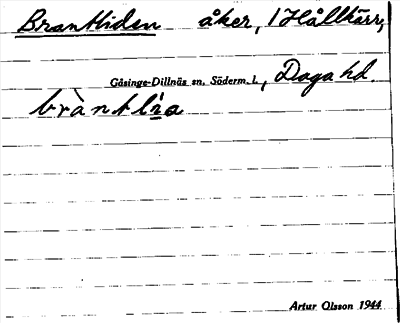 Brantliden åker, 1 Hållkärr,
Gåsinge-Dillnäs sn, Söderm. l., Daga hd.
bràntlìa
Artur Olsson 1944